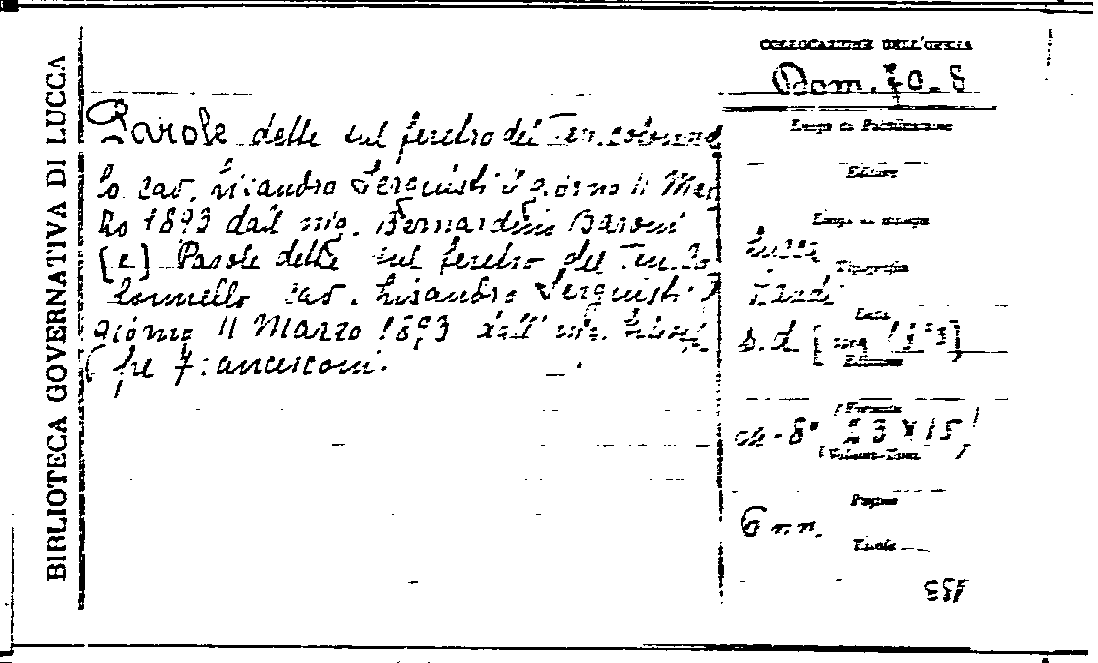 BIBLIOTECA GOVERNATIVA DI LUCCA
COLLOCAZIONE DELL'OPERA
Dom. 70. 8
Parole dette sul feretro del Ten. colonnel
lo cav. Lisandro Serquisti Il giorno 11 Mar
zo 1893 dall' ing. Bernardino Baroni
[e] Parole dette sul feretro del Ten. Co
lonnello cav. Lisandro Serquisti Il
giorno 11 Marzo 1893 dall' ing.
Francesconi.
Luogo di Pubblicazione
Editore
Luogo di stampa
Lucca
Tipografia
Landi
Data
s.d. [1893]
Edizione
Formato
in-8° (23 X 15)
Volumi-Tomi
Pagine
6 nn.
Tavole